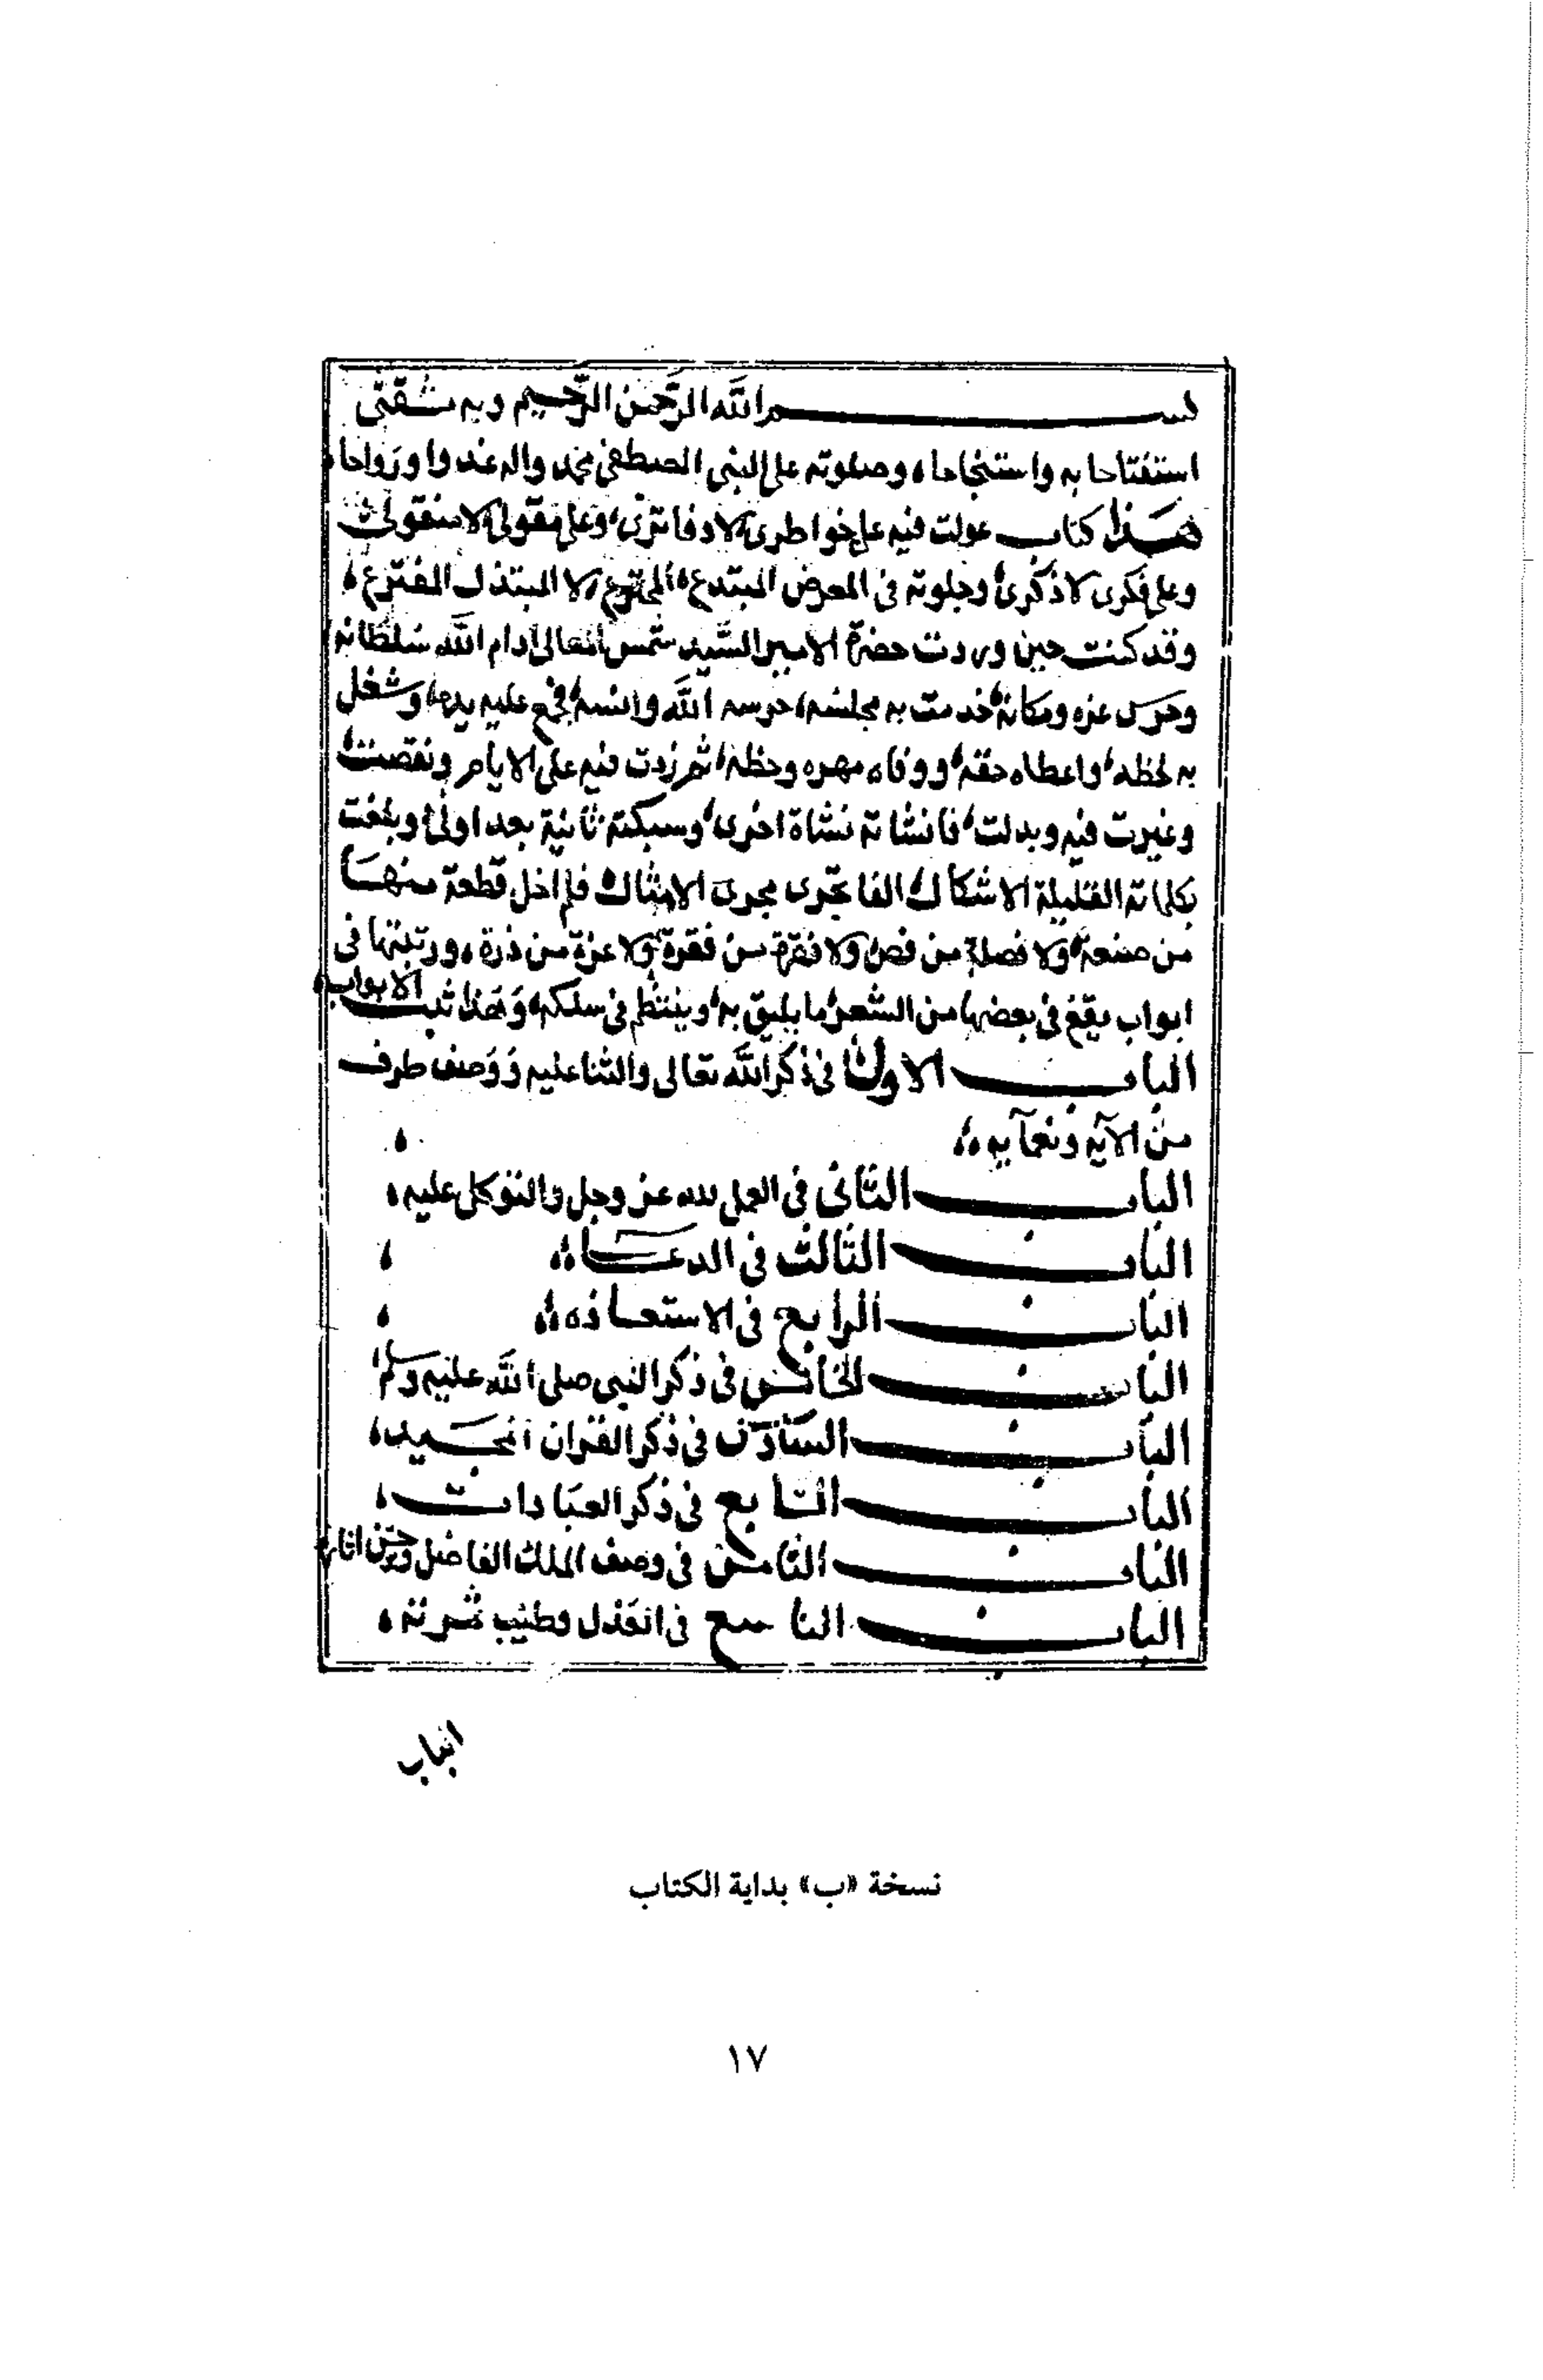 بسم الله الرحمن الرحيم وبه ثقتى
استفتاحا به واستنجاحا، وصلوته على النبى المصطفى محمد واله غدوا ورواحا،
هذا كتاب عولت فيه على خواطرى لا دفاترى، وعلى مقولى لا منقولى
وعلى فكرى لا ذكرى، وجلوته فى المعرض المبتدع المخترع لا المبتذل المفترع،
وقد كنت حين وردت حضرة الامير السيد شمس المعالى ادام الله سلطانه
وحرس عزه ومكانه، خدمت به مجلسه، حرسه الله وانسه، فجمع عليه يده، وشغل
به لحظه، واعطاه حقه، ووفاه مهره وحظه، ثم زدت فيه على الايام ونقصت،
وغيرت فيه وبدلت، فانشاته نشاة اخرى، وسبكته ثانية بعد اولى، وبلغت
بكلماته القليلة الاشكال، الفا تجرى مجرى الامثال، فلم اخل قطعة منها
من صنعة، ولا فصلا من فص، ولا فقرة من فقرة، ولا غرة من درة، ورتبتها فى
ابواب يقع فى بعضها من الشعر ما يليق به، وينتظم فى سلكه، وهذا ثبت الابواب،
الباب الاول فى ذكر الله تعالى والثنا عليه ووصف طرف
من الآيه ونعمآيه،،
الباب الثانى فى العمل لله عز وجل والتوكل عليه،
الباب الثالث فى الدعا،،
الباب الرابع فى الاستعاذه،،
الباب الخامس فى ذكر النبى صلى الله عليه وسلم
الباب السادس فى ذكر القران المجيد،
الباب السابع فى ذكر العبادات،
الباب الثامن فى وصف الملك الفاضل وحسن اثاره
الباب التاسع فى العدل وطيب ثمرته،
الباب
نسخة «ب» بداية الكتاب
١٧